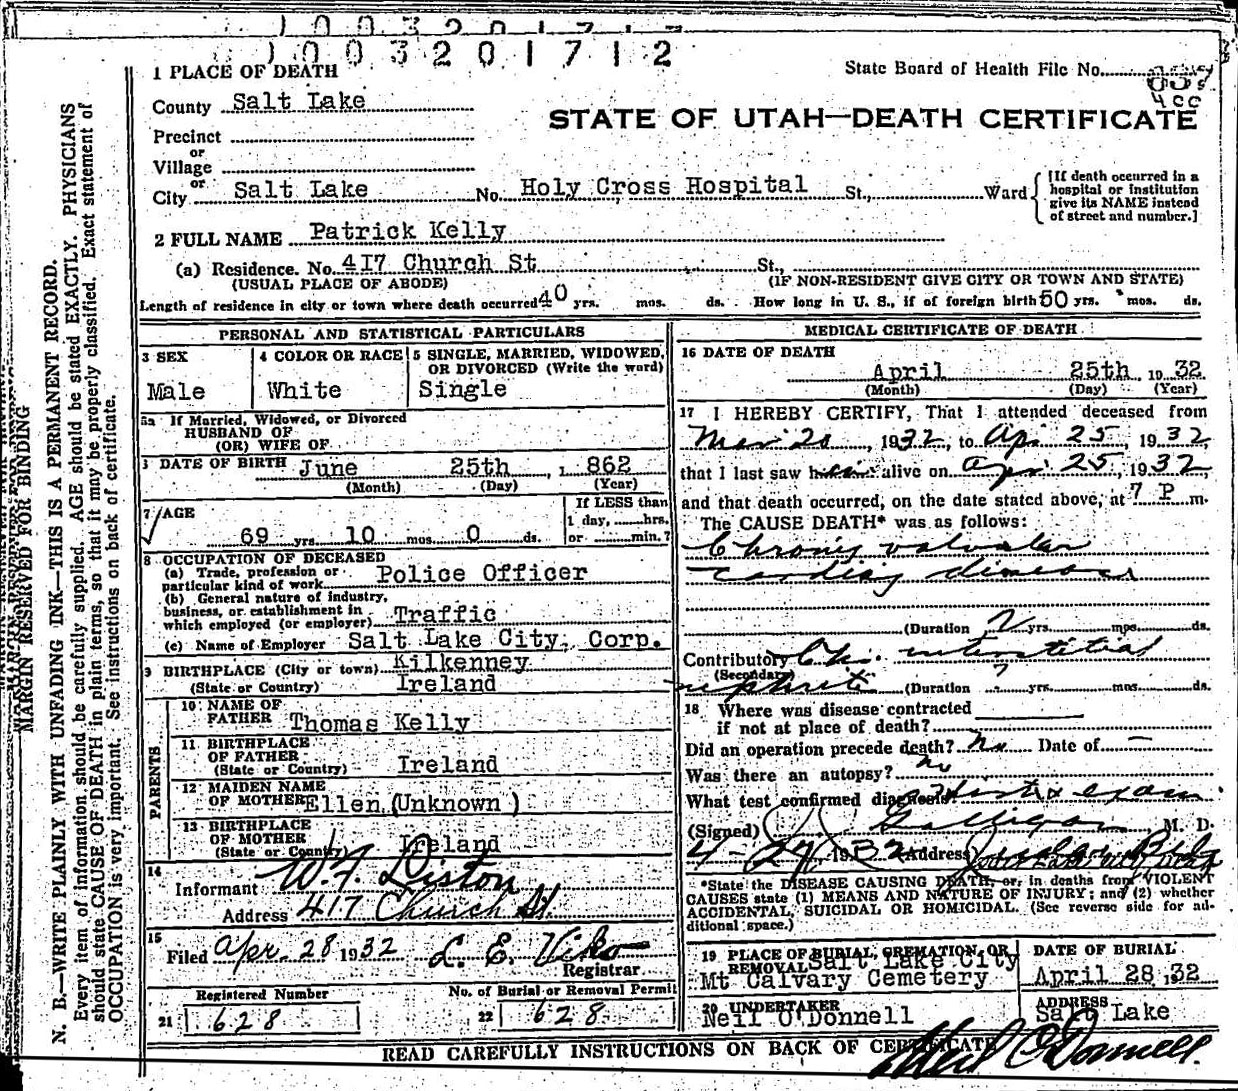 1003201712
1003201712
1 PLACE OF DEATH
State Board of Health File No.
County Salt Lake
400
STATE OF UTAH—DEATH CERTIFICATE
Precinct
or
Village
or
City Salt Lake No. Holy Cross Hospital St., Ward
[If death occurred in a
hospital or institution
give its NAME instead
of street and number.]
2 FULL NAME Patrick Kelly
(a) Residence. No. 417 Church St St.,
(USUAL PLACE OF ABODE) (IF NON-RESIDENT GIVE CITY OR TOWN AND STATE)
Length of residence in city or town where death occurred 40 yrs. mos. ds. How long in U. S., if of foreign birth 50 yrs. mos. ds.
PERSONAL AND STATISTICAL PARTICULARS
3 SEX
Male
4 COLOR OR RACE
White
5 SINGLE, MARRIED, WIDOWED,
OR DIVORCED (Write the word)
Single
5a If Married, Widowed, or Divorced
HUSBAND OF
(OR) WIFE OF
DATE OF BIRTH June 25th, 1 862
(Month) (Day) (Year)
7 AGE
69 yrs. 10 mos. 0 ds.
If LESS than
1 day, hrs.
or min.?
8 OCCUPATION OF DECEASED
(a) Trade, profession or
particular kind of work Police Officer
(b) General nature of industry,
business, or establishment in
which employed (or employer) Traffic
(c) Name of Employer Salt Lake City, Corp.
9 BIRTHPLACE (City or town) Kilkenney
(State or Country) Ireland
PARENTS
10 NAME OF
FATHER Thomas Kelly
11 BIRTHPLACE
OF FATHER
(State or Country) Ireland
12 MAIDEN NAME
OF MOTHER Ellen (Unknown )
13 BIRTHPLACE
OF MOTHER
(State or Country) Ireland
14
Informant W. F. Liston
Address 417 Church St.
15
Filed Apr. 28 1932 L. E. Viko
Registrar
Registered Number
21 628
No. of Burial or Removal Permit
22 628
MEDICAL CERTIFICATE OF DEATH
16 DATE OF DEATH
April 25th, 1932
(Month) (Day) (Year)
17 I HEREBY CERTIFY, That I attended deceased from
Mar 20, 1932, to Apr 25, 1932,
that I last saw alive on Apr 25, 1932,
and that death occurred, on the date stated above, at 7 P m.
The CAUSE DEATH* was as follows:
Chronic valvular
cardiac disease
(Duration 2 yrs. mos. ds.
Contributory Ch. interstitial
(Secondary)
nephritis (Duration ? yrs. mos. ds.
18 Where was disease contracted
if not at place of death?
Did an operation precede death? No Date of —
Was there an autopsy? No
What test confirmed diagnosis? Hist & exam.
(Signed) Galligan, M. D.
4-27, 1932 (Address)
*State the DISEASE CAUSING DEATH, or, in deaths from VIOLENT
CAUSES state (1) MEANS AND NATURE OF INJURY; and (2) whether
ACCIDENTAL, SUICIDAL OR HOMICIDAL. (See reverse side for ad-
ditional space.)
19 PLACE OF BURIAL, CREMATION, OR
REMOVAL Salt Lake City
Mt Calvary Cemetery
DATE OF BURIAL
April 28, 1932
20 UNDERTAKER
Neil O'Donnell
ADDRESS
Salt Lake
READ CAREFULLY INSTRUCTIONS ON BACK OF CERTIFICATE
Neil O'Donnell.
MARGIN RESERVED FOR BINDING
N. B.—WRITE PLAINLY WITH UNFADING INK—THIS IS A PERMANENT RECORD.
Every item of information should be carefully supplied. AGE should be stated EXACTLY. PHYSICIANS
should state CAUSE OF DEATH in plain terms, so that it may be properly classified. Exact statement of
OCCUPATION is very important. See instructions on back of certificate.